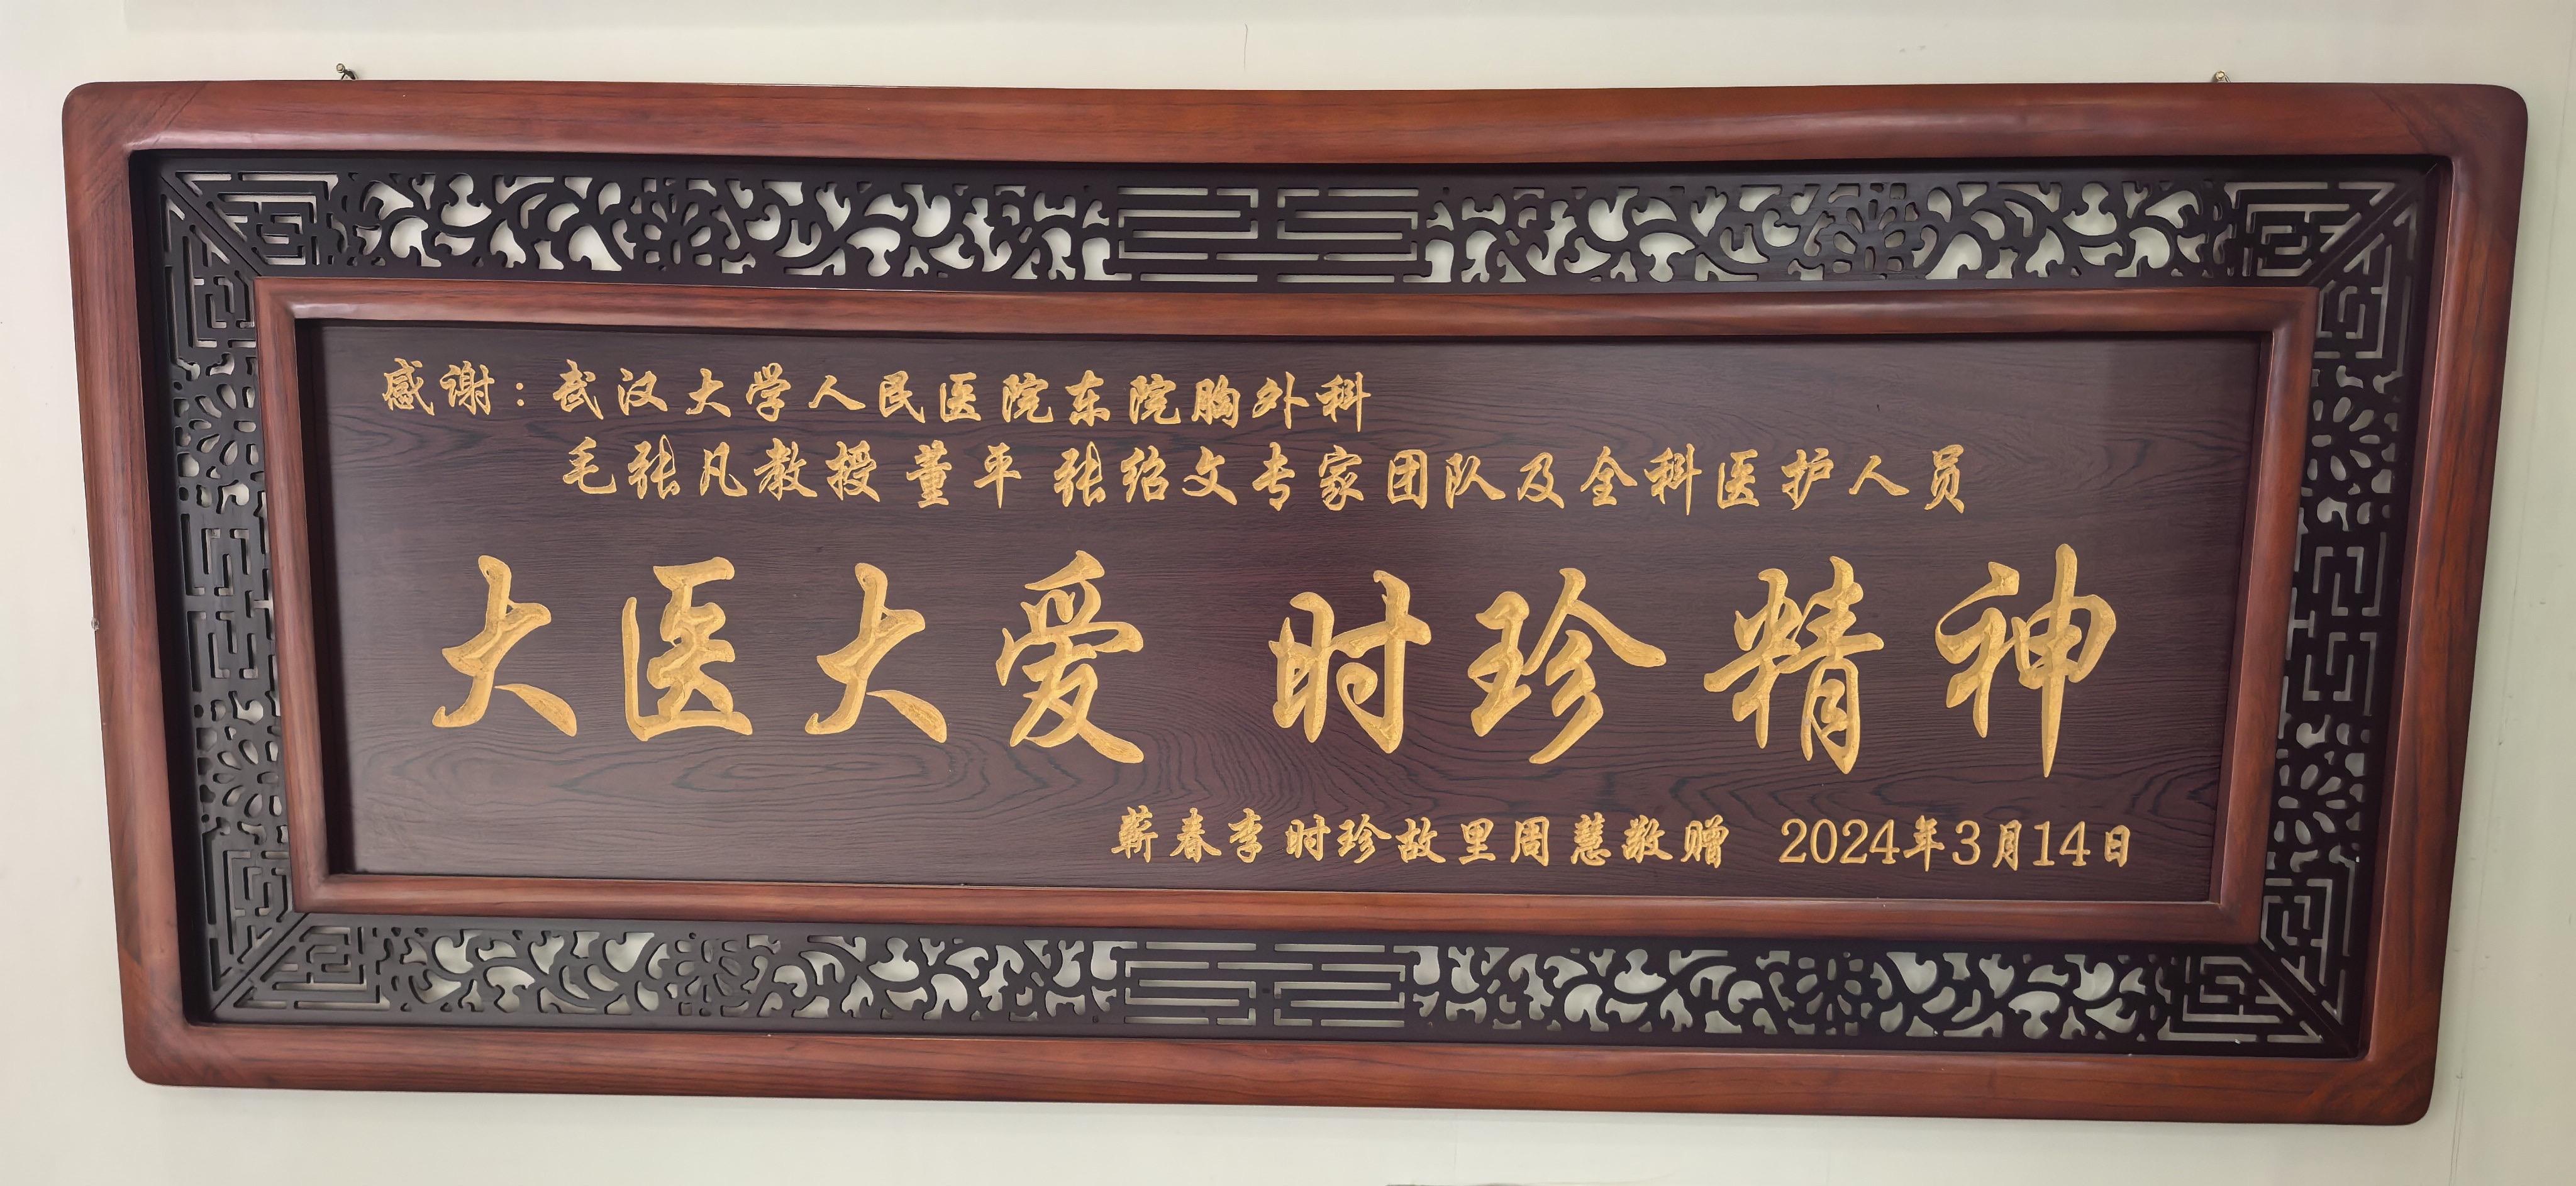 感谢：武汉大学人民医院东院胸外科
毛张凡教授 董平 张绍文专家团队及全科医护人员
大医大爱 时珍精神
蕲春李时珍故里周慧敬赠 2024年3月14日